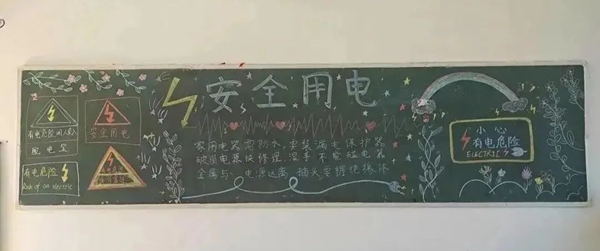 安全用电
有电危险闲人勿入
配电室
安全用电
有电危险
Risk of an electric
家用电器需防水 安装漏电保护器
破损电器快修理 湿手不要碰电器
金属与电源远离 插头安牢快拔休
小心
有电危险
ELECTRIC